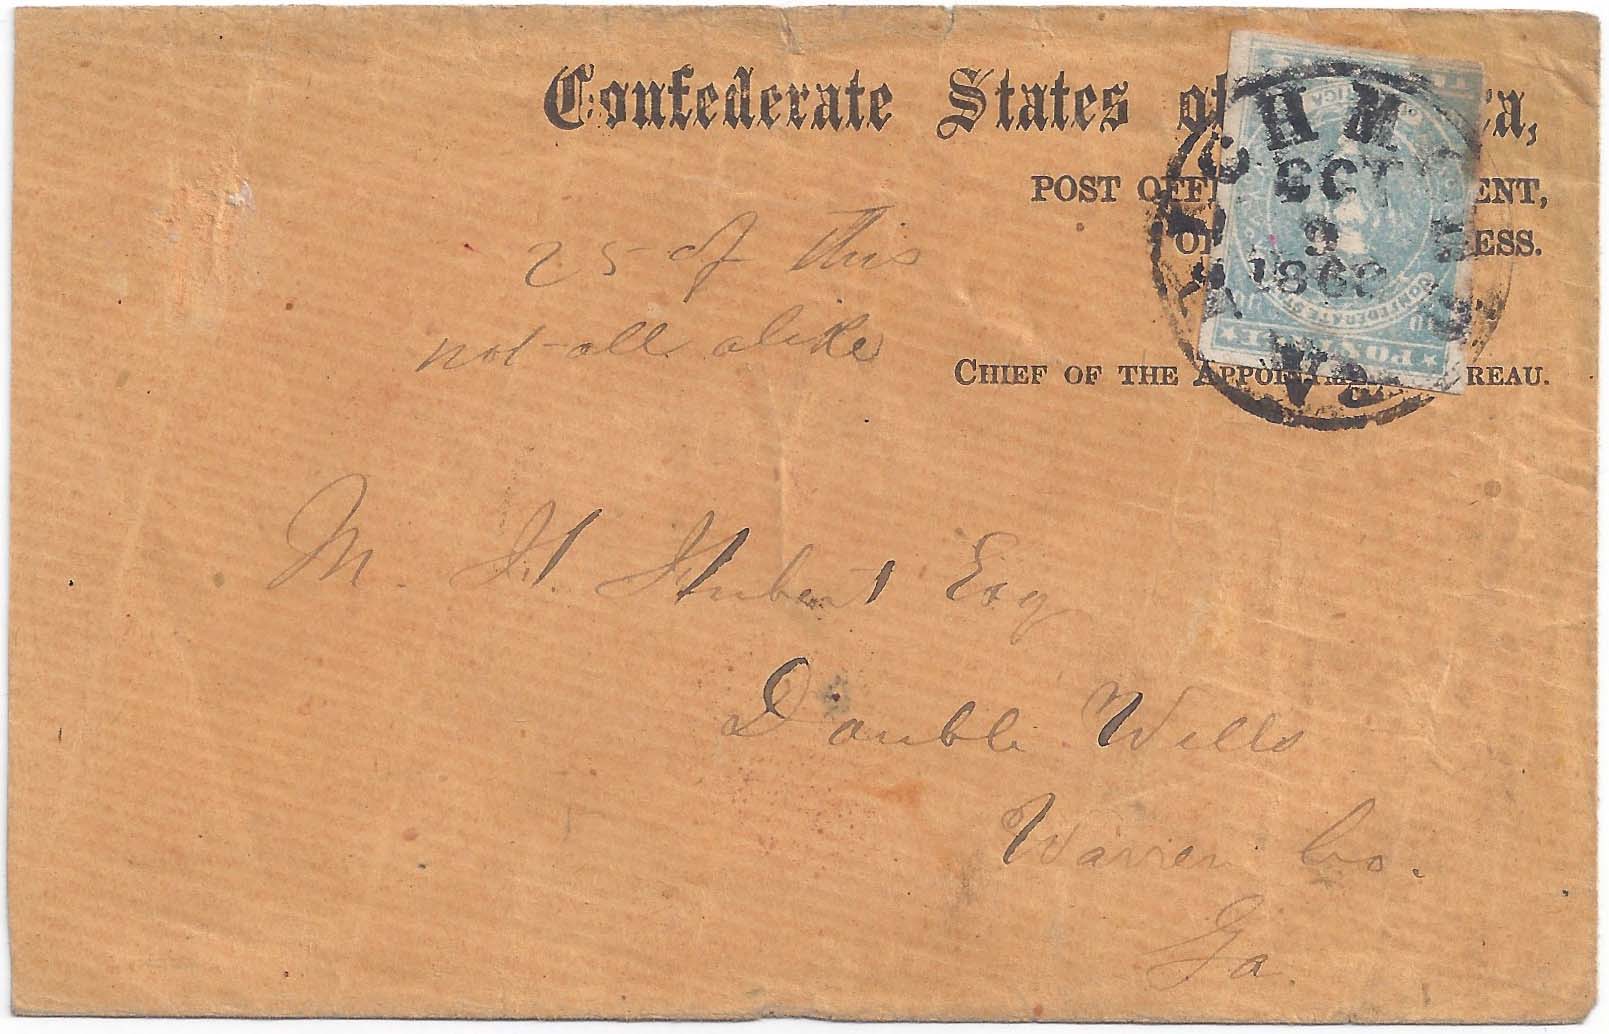 Confederate States of
POST OFF ENT,
OF ESS.
CHIEF OF THE APPOINTMENT BUREAU.
RICHMOND
OCT
6
VA.
POSTAGE
25 of this
not all alike
M. H. Hubert Esq
Double Wells
Warren Co.
Ga